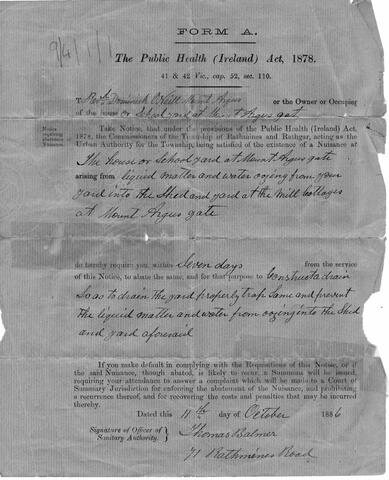 9/4/1/1
FORM A.
The Public Health (Ireland) Act, 1878.
41 & 42 Vic., cap. 52, sec. 110.
To Revd. Dominick O'Neill Mount Argus or the Owner or Occupier
of the house or School yard at Mount Argus gate
Notice requiring abatement of Nuisance.
Take Notice, that under the provisions of the Public Health (Ireland) Act,
1878, the Commissioners of the Township of Rathmines and Rathgar, acting as the
Urban Authority for the Township, being satisfied of the existence of a Nuisance at
The house or School yard at Mount Argus gate
arising from liquid matter and water oozing from your
yard into the Shed and yard at the Mill Cottages
at Mount Argus gate
do hereby require you, within Seven days from the service
of this Notice, to abate the same, and for that purpose to Construct a drain
So as to drain the yard properly trap Same and prevent
the liquid matter and water from oozing into the Shed
and yard aforesaid
If you make default in complying with the Requisitions of this Notice, or if
the said Nuisance, though abated, is likely to recur, a Summons will be issued,
requiring your attendance to answer a complaint which will be made to a Court of
Summary Jurisdiction for enforcing the abatement of the Nuisance, and prohibiting
a recurrence thereof, and for recovering the costs and penalties that may be incurred
thereby.
Dated this 11th day of October 1886
Signature of Officer of Sanitary Authority. Thomas Balmer
71 Rathmines Road